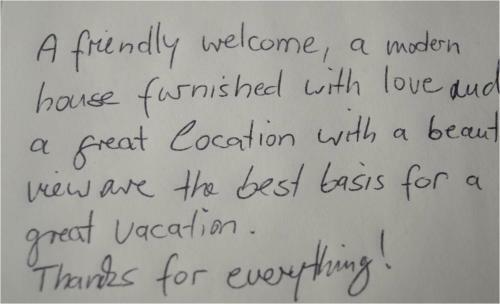 A friendly welcome, a modern
house furnished with love and
a great location with a beaut
view are the best basis for a
great vacation.
Thanks for everything!